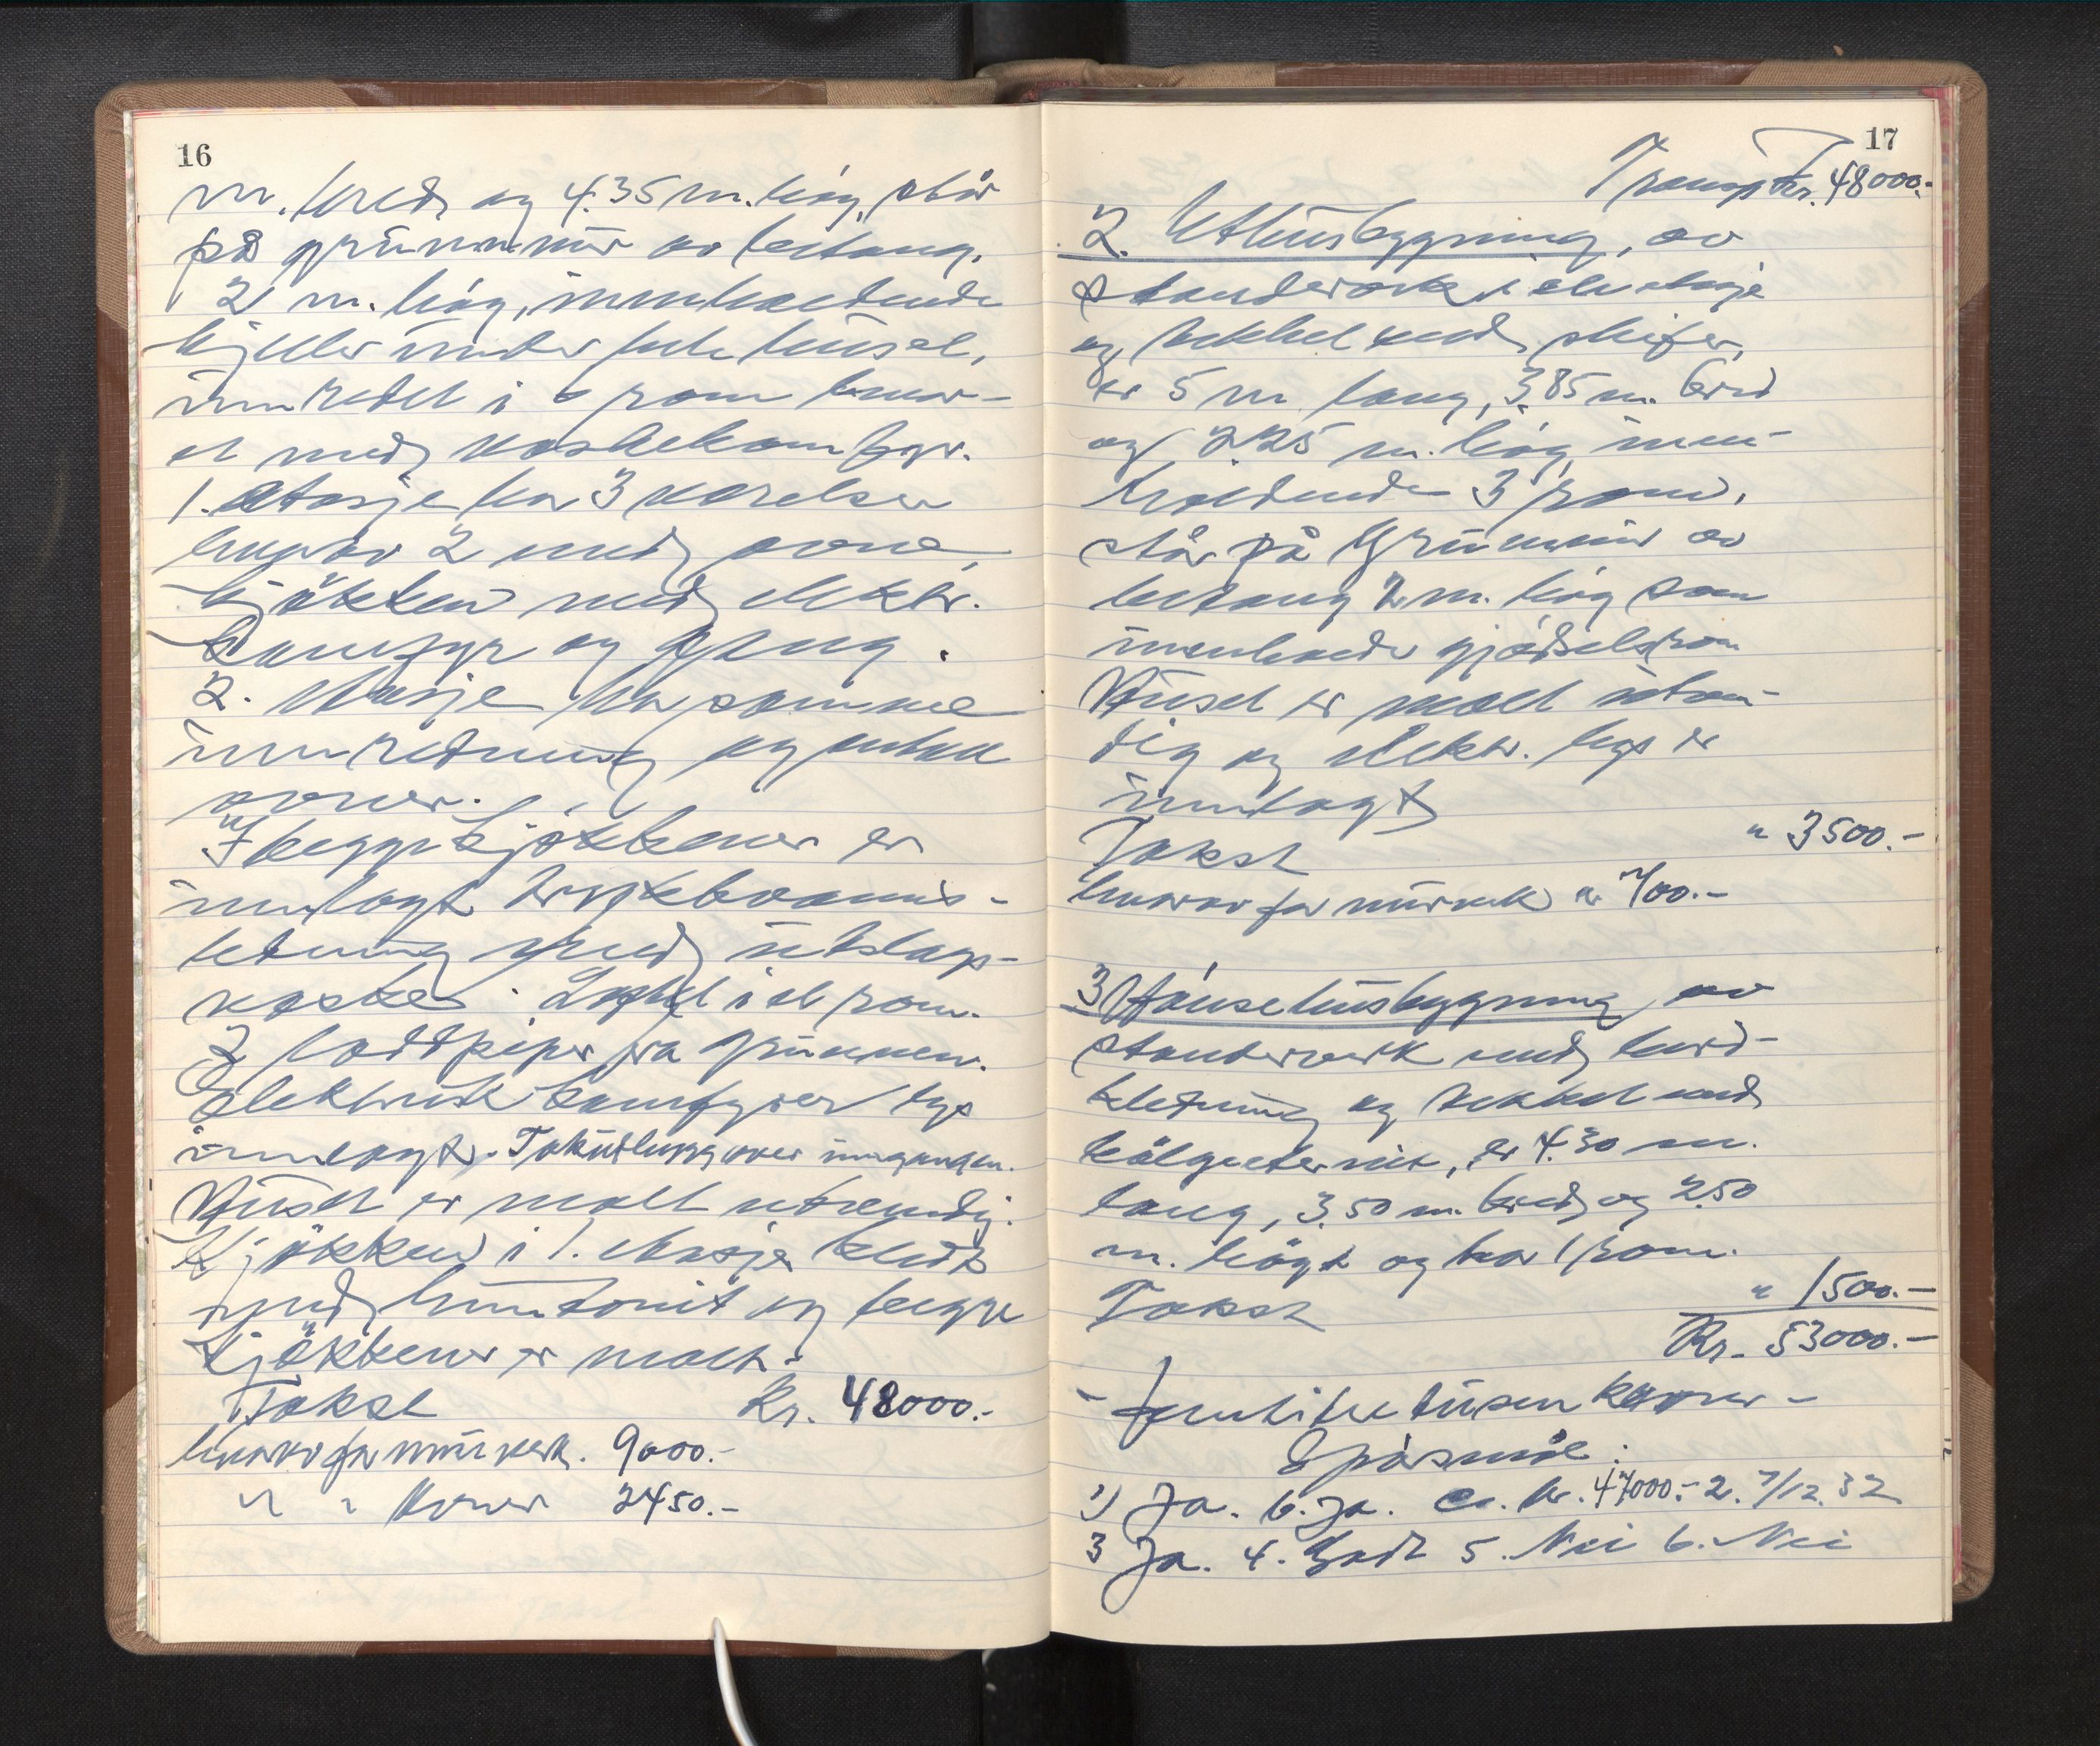 16
m. bred og 4.35 m. høg, står
på grunnmur av betong,
2 m. høg, innholdende
kjeller under hele huset,
innredet i 6 rom hvor-
et med vaskekomfyr.
1. etasje har 3 værelser
hvorav 2 med ovne,
kjøkken med elektr.
komfyr og gang.
2. etasje har samme
innredning og antall
ovner.
I begge kjøkkener er
innlagt trykkvanns-
ledning med utslags-
vasker. Loftet i et rom.
2 loddpiper fra grunnen.
Elektrisk komfyrer lys
innlagt. Takutbygg over inngangen.
Huset er malt utvendig.
Kjøkken i 1. etasje kledt
med huntonit og begge
kjøkkener er malt.
Takst Kr. 48000.-
hvorav for murverk. 9000.-
" " Ovner 2450.-
17
Transp. Kr. 48000.-
2. Uthusbygning, av
standerverk i en etasje
og tekket med skifer,
er 5 m lang, 3.85 m. bred
og 2.25 m. høg inne-
holdende 3 rom,
står på Grunnmur av
betong 2 m. høg som
inneholder gjødselsrom
Huset er malt utven-
dig og elektr. lys er
innlagt
Takst " 3500.-
hvorav for murverk kr 700.-
3 Hønsehusbygning av
standerverk med bord-
kledning og tekket med
bølgeeternit, er 4.30 m.
lang, 3.50 m. bred og 2.50
m. høgt og har 1 rom.
Takst " 1500.-
Kr. 53000.-
- femtitretusen kroner -
Spørsmål:
1) Ja. b. Ja. Ca. kr. 47000.- 2. 7/12. 32
3 Ja. 4. Godt 5. Nei 6. Nei